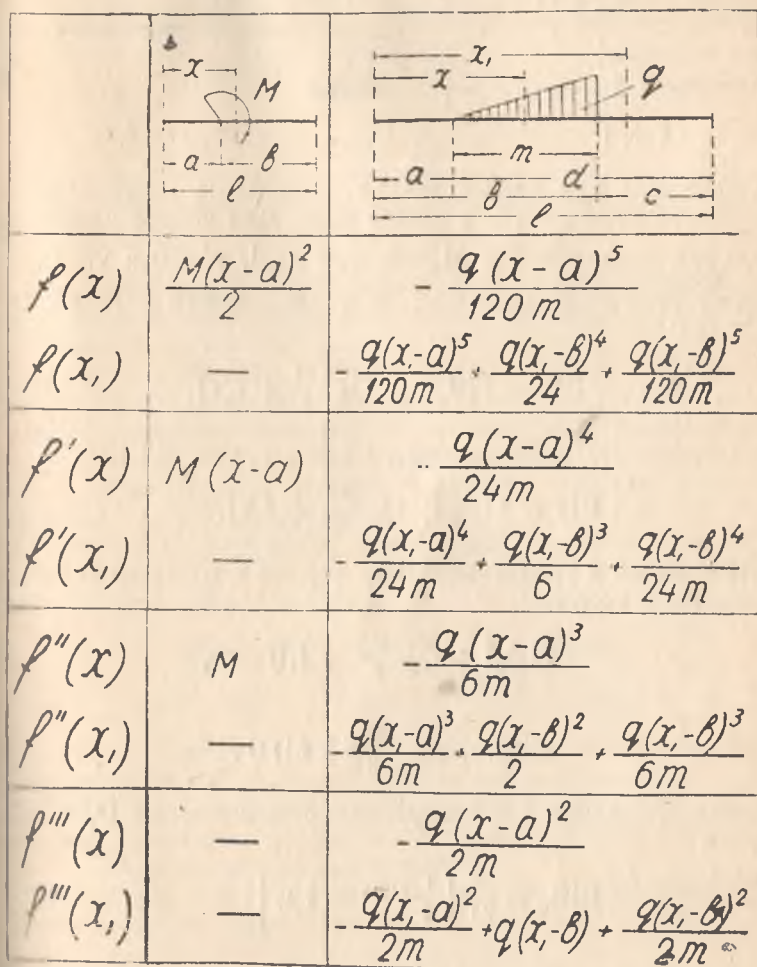 x M
a в
l
x₁
x q
m
a d
в c
l
f(x) M(x-a)²/2 - q(x-a)⁵/120m
f(x₁) — - q(x₁-a)⁵/120m + q(x₁-в)⁴/24 + q(x₁-в)⁵/120m
f'(x) M(x-a) - q(x-a)⁴/24m
f'(x₁) — - q(x₁-a)⁴/24m + q(x₁-в)³/6 + q(x₁-в)⁴/24m
f''(x) M - q(x-a)³/6m
f''(x₁) — - q(x₁-a)³/6m + q(x₁-в)²/2 + q(x₁-в)³/6m
f'''(x) — - q(x-a)²/2m
f'''(x₁) — - q(x₁-a)²/2m + q(x₁-в) + q(x₁-в)²/2m